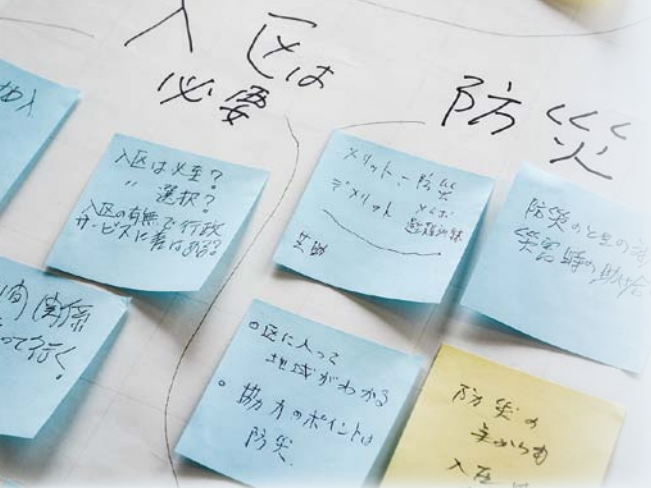 入区は
必要
防災
加入
入区は必至?
〃 選択?
入区の有無で行政
サービスに差はある?
メリット – 防災
デメリット
避難訓練
共助
防災のときの
災害時の助
関係
って行く
○区に入って
地域がわかる
○協力のポイントは
防災.
防災の
面からも
入区